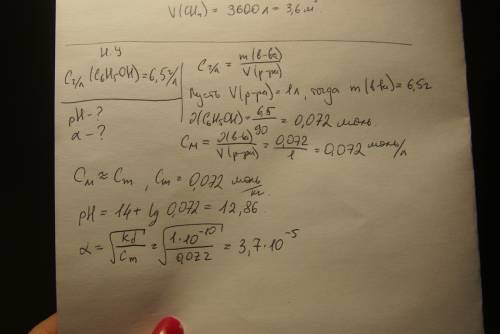 V(CH₄) = 3600 л = 3,6 м³
Н.У
C г/л (C₆H₅OH) = 6,5 г/л
pH - ?
α - ?
C г/л = m(в-ва) / V(р-ра)
Пусть V(р-ра) = 1л, тогда m(в-ва) = 6,5г
ν(C₆H₅OH) = 6,5 / 90 = 0,072 моль.
Cм = ν(в-ва) / V(р-ра) = 0,072 / 1 = 0,072 моль/л
Cм ≈ Cm , Cm = 0,072 моль/кг
pH = 14 + lg 0,072 = 12,86
α = √(Kd / Cm) = √(1·10⁻¹⁰ / 0,072) = 3,7·10⁻⁵